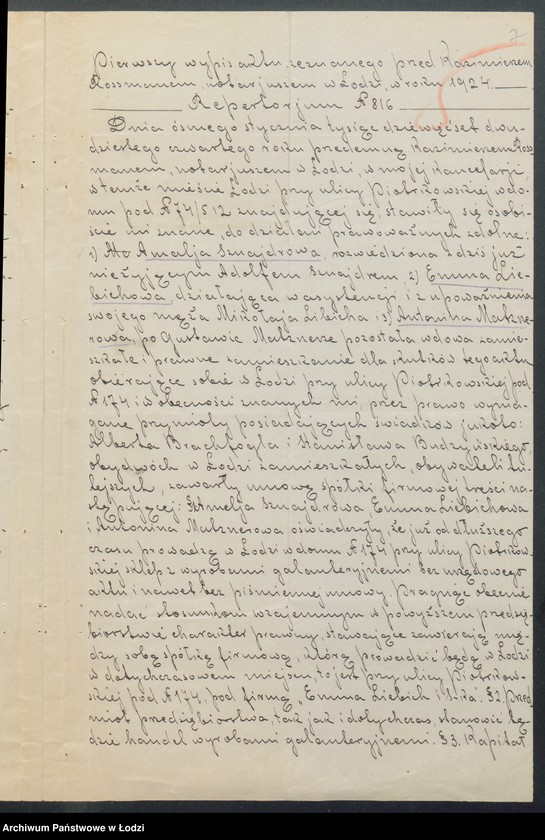 2
Pierwszy wypis aktu, zeznanego przed Kazimierzem
Rossmanem, notarjuszem w Łodzi, w roku 1924.
Repertorjum № 816
Dnia ósmego stycznia tysiąc dziewięćset dwu-
dziestego czwartego roku przedemną Kazimierzem Ross-
manem, notarjuszem w Łodzi, w mojej Kancelarji,
w temże mieście Łodzi przy ulicy Piotrkowskiej w do-
mu pod № 74/512 znajdującej się, stawiły się osobi-
ście mi znane, do działań prawoważnych zdolne:
1) Amalja Sznajdrowa, rozwiedziona z dziś już
nieżyjącym Adolfem Sznajdrem, 2) Emma Lie-
bichowa, działająca w asystencji i z upoważnienia
swojego męża Mikołaja Libicha i 3) Antonina Matzne-
rowa, po Gustawie Matznerze pozostała wdowa zamie-
szkałe i prawne zamieszkanie dla skutków tego aktu
obierające sobie w Łodzi przy ulicy Piotrkowskiej pod
№ 174 i w obecności znanych mi, przez prawo wyma-
gane przymioty posiadających świadków jakoto:
Alberta Brachfogla i Stanisława Budzyńskiego,
obydwóch w Łodzi zamieszkałych, obywateli tu-
tejszych, zawarły umowę spółki firmowej treści na-
stępującej: § 1. Amelja Sznajdrowa, Emma Liebichowa
i Antonina Matznerowa oświadczyły, że już od dłuższego
czasu prowadzą w Łodzi w domu № 174 przy ulicy Piotrkow-
skiej sklep z wyrobami galanteryjnemi bez urzędowego
aktu i nawet bez piśmiennej umowy. Pragnąc obecnie
nadać stosunkom wzajemnym w powyższem przedsię-
biorstwie charakter prawny, stawające zawierają mię-
dzy sobą spółkę firmową, którą prowadzić będą w Łodzi
w dotychczasowem miejscu, to jest przy ulicy Piotrkow-
skiej pod № 174, pod firmą „Emma Liebich i S-ka. § 2. Przed-
miot przedsiębiorstwa, tak jak i dotychczas, stanowić bę-
dzie handel wyrobami galanteryjnemi. § 3. Kapitał
Archiwum Państwowe w Łodzi